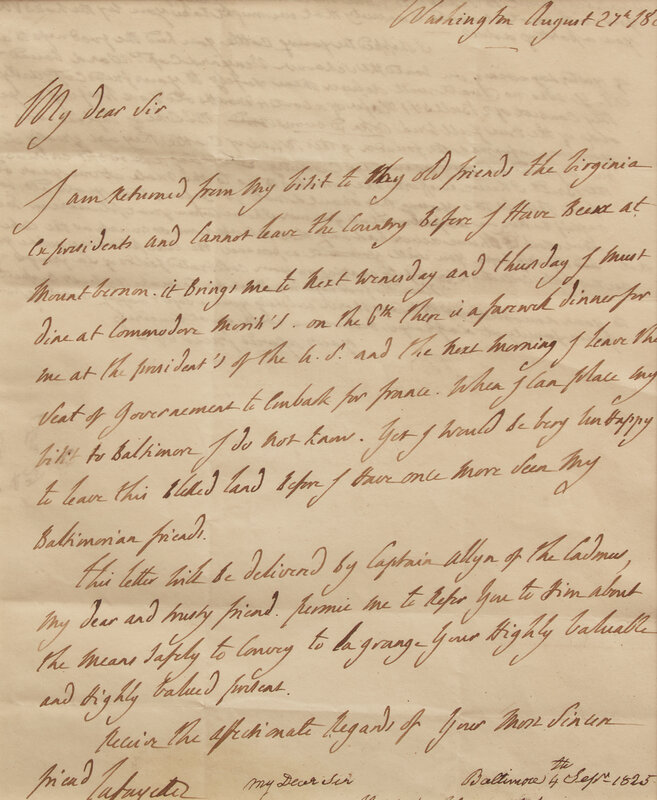 Washington August 27th 18
My dear Sir
I am Returned from My Visit to My old friends the Virginia
Ex presidents and Cannot leave the Country Before I Have Been at
Mount vernon. it Brings me to Next Wenesday and thursday I Must
dine at Commodore Morris's. on the 6th there is a farewell dinner for
me at the president's of the U. S. and the Next Morning I leave the
Seat of Governement to Embark for france. When I Can place my
Visit to Baltimore I do not know. Yet I Would Be Very Unhappy
to leave this Blessed land Before I Have once More Seen My
Baltimorian friends.
this letter Will Be delivered by Captain Allyn of the Cadmus,
My dear and trusty friend. permit me to Refer You to Him about
the Means Safely to Convey to la grange Your Highly Valuable
and Highly Valued present.
Receive the affectionate Regards of Your Most Sincere
friend Lafayette
My Dear Sir Baltimore 4th Sepr. 1825